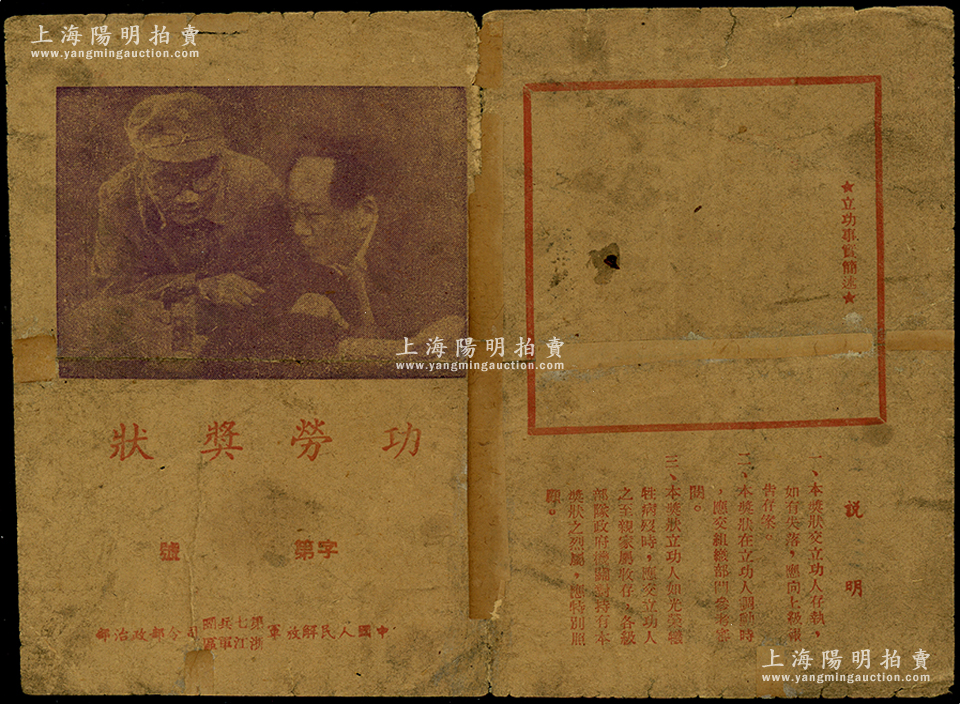 上海陽明拍賣
www.yangmingauction.com
功勞獎狀
字第 號
中國人民解放軍第七兵團浙江軍區司令部政治部
上海陽明拍賣
www.yangmingauction.com
★立功事實簡述★
說明
一、本獎狀交立功人存執,
如有失落,應向上級報
告存案。
二、本獎狀在立功人調動時
,應交組織部門參考審
閱。
三、本獎狀立功人如光榮犧
牲病歿時,應交立功人
之至親家屬收存,各級
部隊政府機關對持有本
獎狀之烈屬,應特別照
顧。
上海陽明拍賣
www.yangmingauction.com